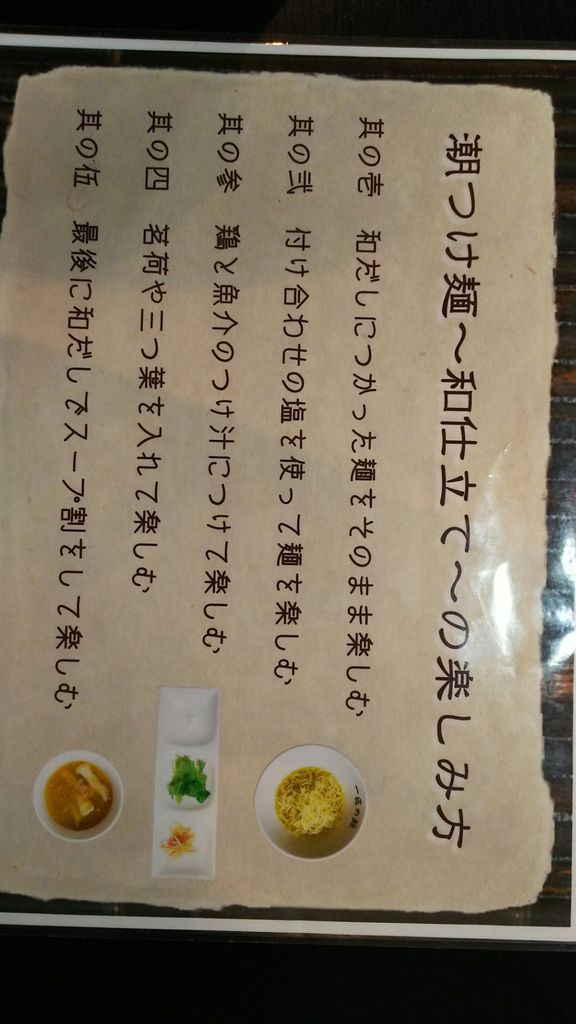 潮つけ麺～和仕立て～の楽しみ方
其の壱 和だしにつかった麺をそのまま楽しむ
其の弐 付け合わせの塩を使って麺を楽しむ
其の参 鶏と魚介のつけ汁につけて楽しむ
其の四 茗荷や三つ葉を入れて楽しむ
其の伍 最後に和だしでスープ割をして楽しむ